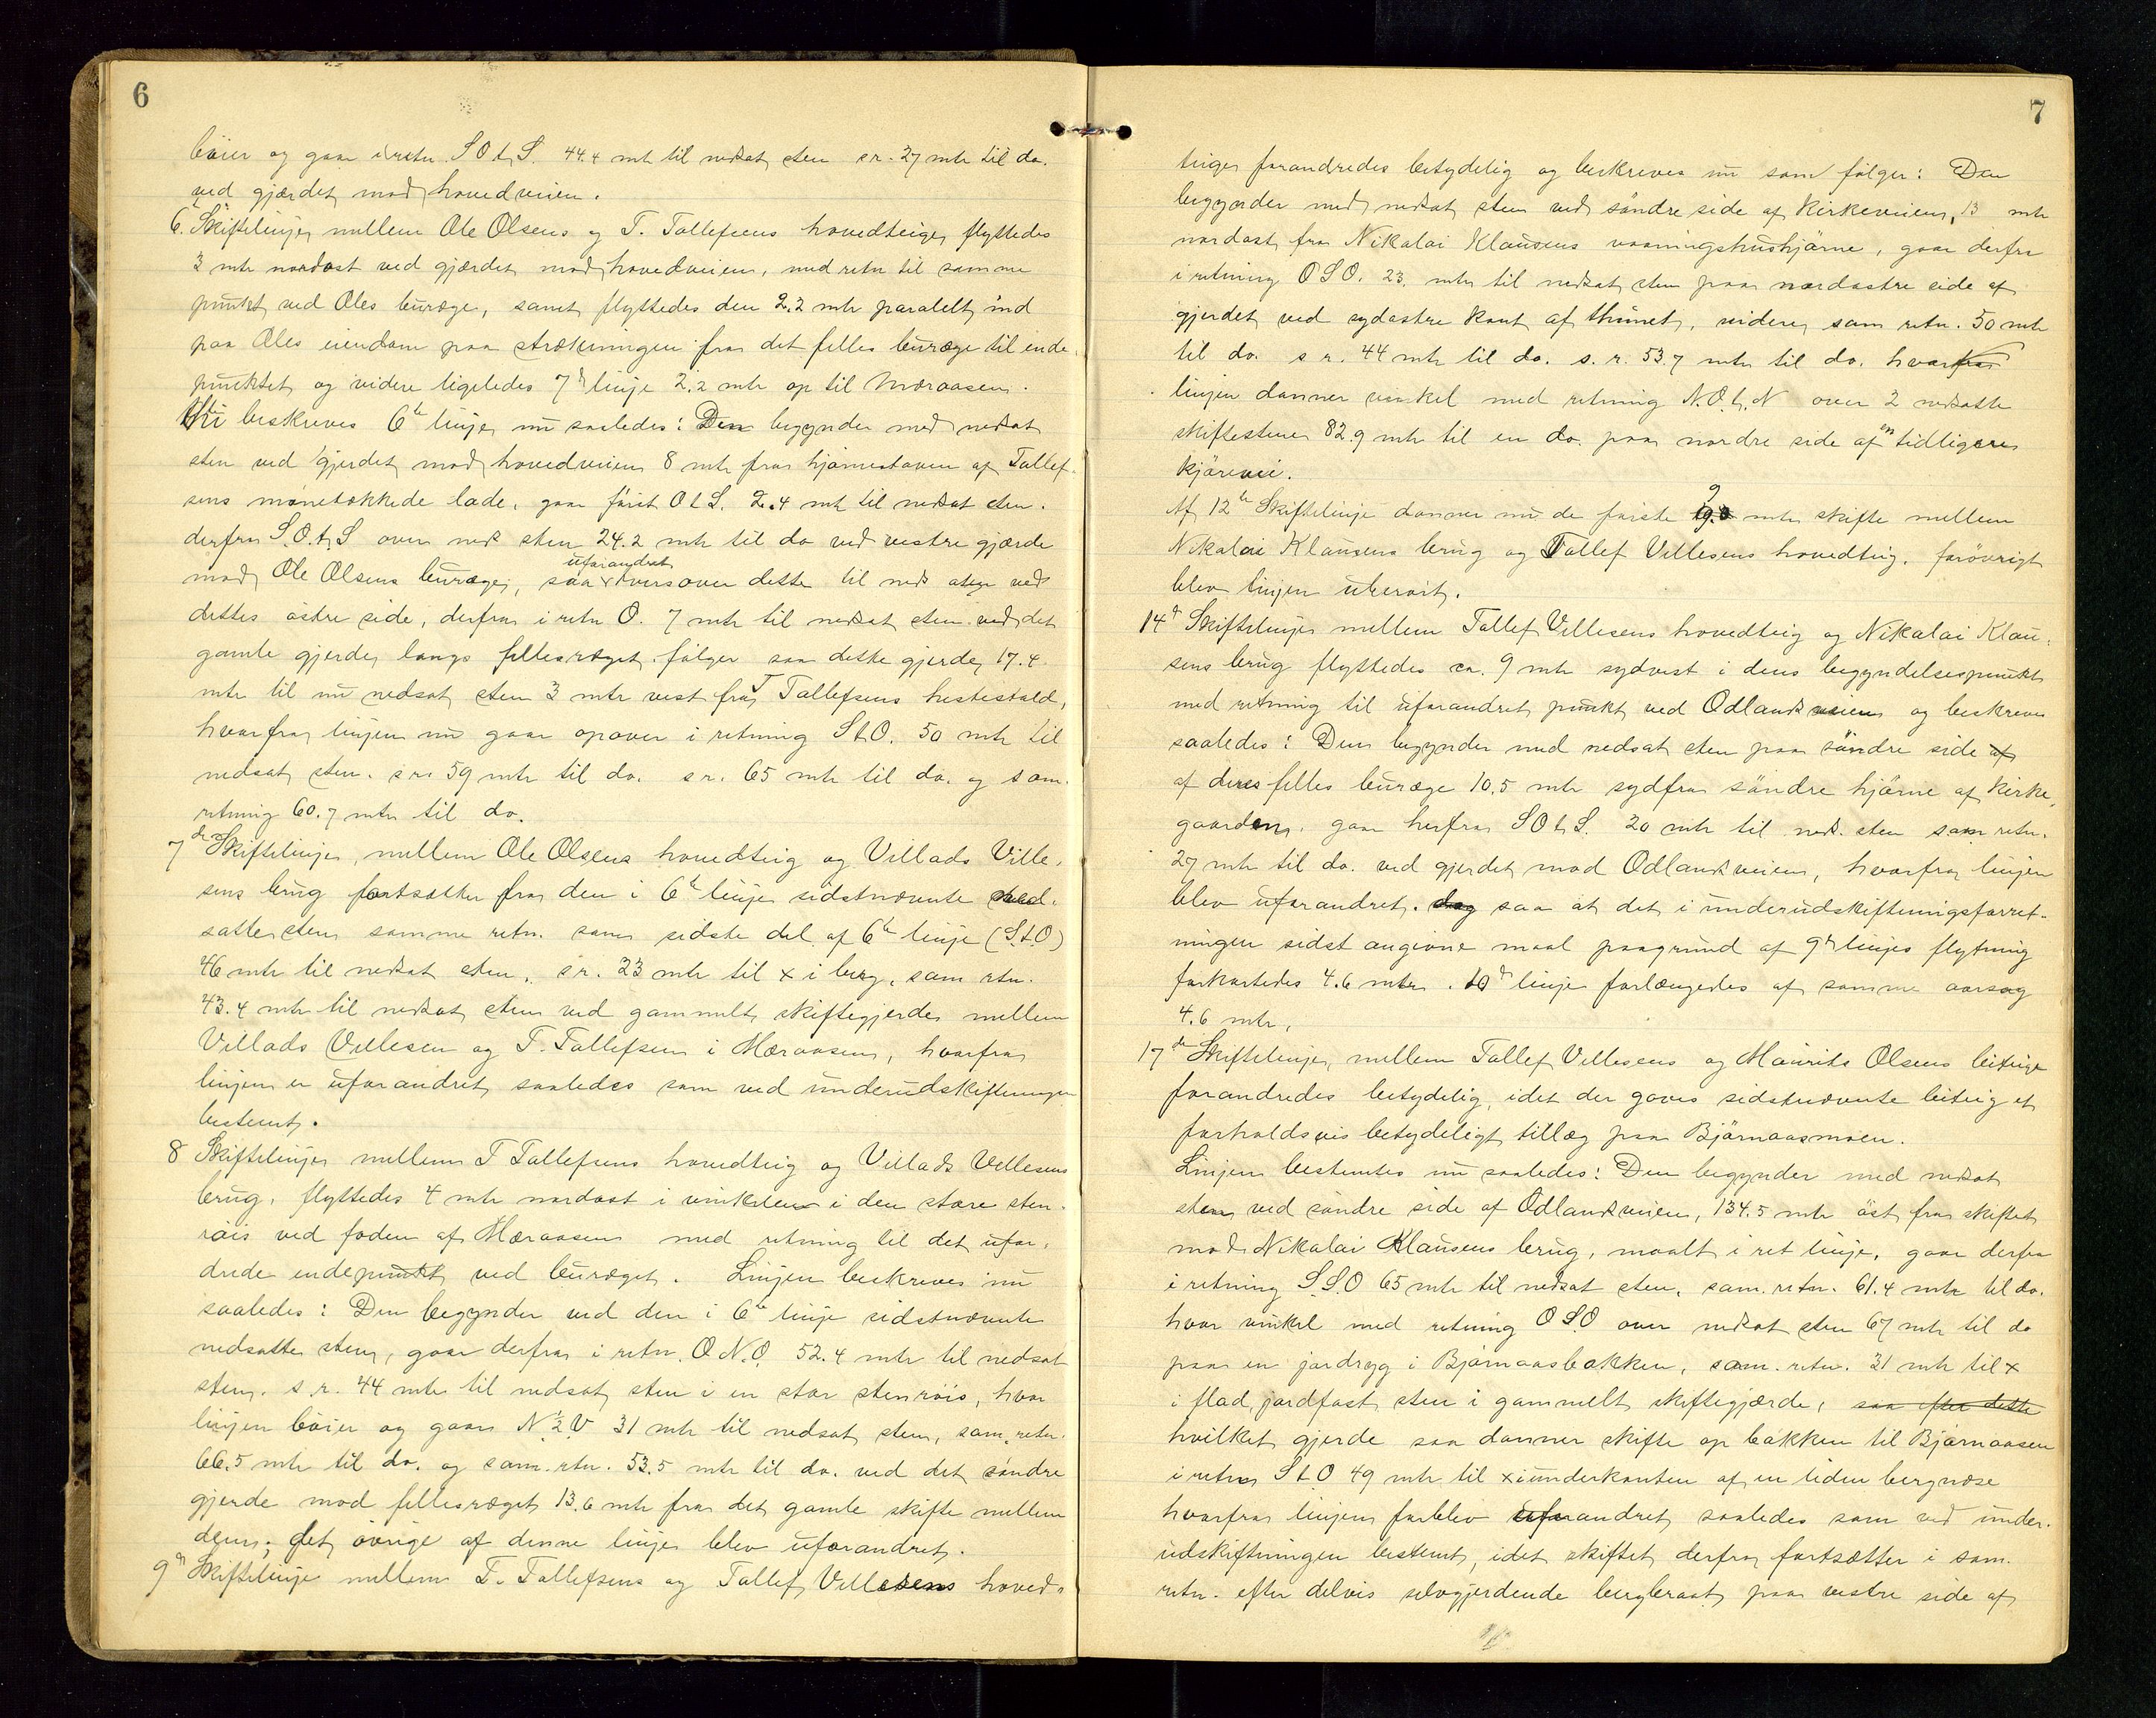 6
böier og gaar i retn. S O t. S. 44.4 mtr til nedsat sten s r. 27 mtr til do.
ved gjærdet mod hovedveien.
6. Skiftelinje mellem Ole Olsens og T. Tallefsens hovedteige flyttedes
3 mtr nordost ved gjærdet mod hovedveien, med retn til samme
punkt ved Oles buræge, samt flyttedes den 2.2 mtr paralelt ind
paa Oles eiendom paa strækningen fra det felles buræge til ende
punktet og videre ligeledes 7de linje 2.2 mtr op til Mæraasen.
beskreves 6te linje nu saaledes: Den begynder med nedsat
sten ved gjerdet mod hovedveien 8 mtr fra hjørnestaven af Tallef-
sens mønetækkede lade, gaar først O t S. 2.4 mtr til nedsat sten.
derfra S.O.t.S over neds sten 24.2 mtr til do ved vestre gjærde
mod Ole Olsens buræge, saa uforandret tversover dette til neds sten ved
dettes østre side, derfra i retn O. 7 mtr til nedsat sten ved det
gamle gjerde langs fellesræget. følger saa dette gjerde 17.4
mtr til nu nedsat sten 3 mtr vest fra T Tallefsens hestestald,
hvorfra linjen nu gaar opover i retning S t O. 50 mtr til
nedsat sten. s r. 59 mtr til do. s r. 65 mtr til do. og sam.
retning 60.7 mtr til do.
7de Skiftelinje, mellem Ole Olsens hovedteig og Villads Ville-
sens brug fortsætter fra den i 6te linje sidstnævnte ned-
satte sten samme retn. som sidste del af 6te linje (S.t.O)
46 mtr til nedsat sten, s r. 23 mtr til x i berg, sam rtn.
43.4 mtr til nedsat sten ved gammelt skiftegjerde mellem
Villads Villesen og T. Tallefsen i Mæraasen, hvorfra
linjen er uforandret saaledes som ved underudskiftningen
bestemt.
8 Skiftelinje mellem T Tallefsens hovedteig og Villads Villesens
brug. flyttedes 4 mtr nordost i vinkelen i den store sten-
röis ved foden af Mæraasen med retning til det ufor-
drede endepunkt ved buræget. Linjen beskreves nu
saaledes: Den begynder ved den i 6te linje sidstnævnte
nedsatte sten, gaar derfra i retn. O N.O. 52.4 mtr til nedsat
sten. s r. 44 mtr til nedsat sten i en stor stenröis, hvor
linjen böier og gaar N ½ V 31 mtr til nedsat sten, sam. retn.
66.5 mtr til do. og sam. rtn. 53.5 mtr til do. ved det söndre
gjerde mod fellesræget 13.6 mtr fra det gamle skifte mellem
dem; det övrige af denne linje blev uforandret.
9de Skiftelinje mellem T. Tallefsens og Tallef Villesens hoved-
7
teiger forandredes betydelig og beskreves nu som følger: Den
begynder med nedsat sten ved söndre side af Kirkeveien, 13 mtr
nordost fra Nikolai Klausens vaaningshushjörne, gaar derfra
i retning O S O. 23. mtr til nedsat sten paa nordostre side af
gjerdet ved sydostre kant af thunet, videre sam retn. 50 mtr
til do. s r. 44 mtr til do. s. r. 53.7 mtr til do. hvorfra
linjen danner vinkel med retning N.O.t.N over 2 nedsatte
skiftestene 82.9 mtr til en do. paa nordre side af en tidligere
kjörevei.
Af 12te Skiftelinje danner nu de förste 9 mtr skifte mellem
Nikolai Klausens brug og Tallef Villesens hovedteig. forövrigt
blev linjen uberört.
14de Skiftelinje mellem Tallef Villesens hovedteig og Nikolai Klau-
sens brug flyttedes ca. 9 mtr sydvest i dens begyndelsespunkt
med retning til uforandret punkt ved Odlandsveien og beskreves
saaledes: Den begynder med nedsat sten paa söndre side af
af deres felles buræge 10.5 mtr sydfra söndre hjörne af kirke-
gaarden. gaar herfra S O t S. 20 mtr til neds. sten sam retn.
27 mtr til do. ved gjerdet mod Odlandsveien, hvorfra linjen
blev uforandret. dog saa at det i underudskiftningsforret-
ningen sidst angivne maal paagrund af 9de linjes flytning
forkortedes 4.6 mtr. 10de linje forlængedes af samme aarsag
4.6 mtr.
17de Skiftelinje, mellem Tallef Villesens og Maurits Olsens beiteige
forandredes betydelig, idet der gaves sidstnævnte beiteig et
forholdsvis betydeligt tillæg paa Björnaasmoen.
Linjen bestemtes nu saaledes: Den begynder med nedsat
sten ved söndre side af Odlandsveien, 134.5 mtr öst fra skiftet
mod Nikolai Klausens brug, maalt i ret linje, gaar derfra
i retning S.S.O 65 mtr til nedsat sten, sam. retn. 61.4 mtr til do.
hvor vinkel med retning O S.O over nedsat sten 67 mtr til do
paa en jordryg i Björnaasbakken, sam. retn. 31 mtr til x
i flad, jordfast sten i gammelt skiftegjærde, saa efter dette
hvilket gjerde saa danner skifte op bakken til Björnaasen
i retn S t O 49 mtr til x i underkanten af en liden bergnæse
hvorfra linjen forblev uforandret saaledes som ved under-
udskiftningen bestemt, idet skiftet derfra fortsætter i sam.
retn. efter delvis selvgjerdende bergbrant paa vestre side af